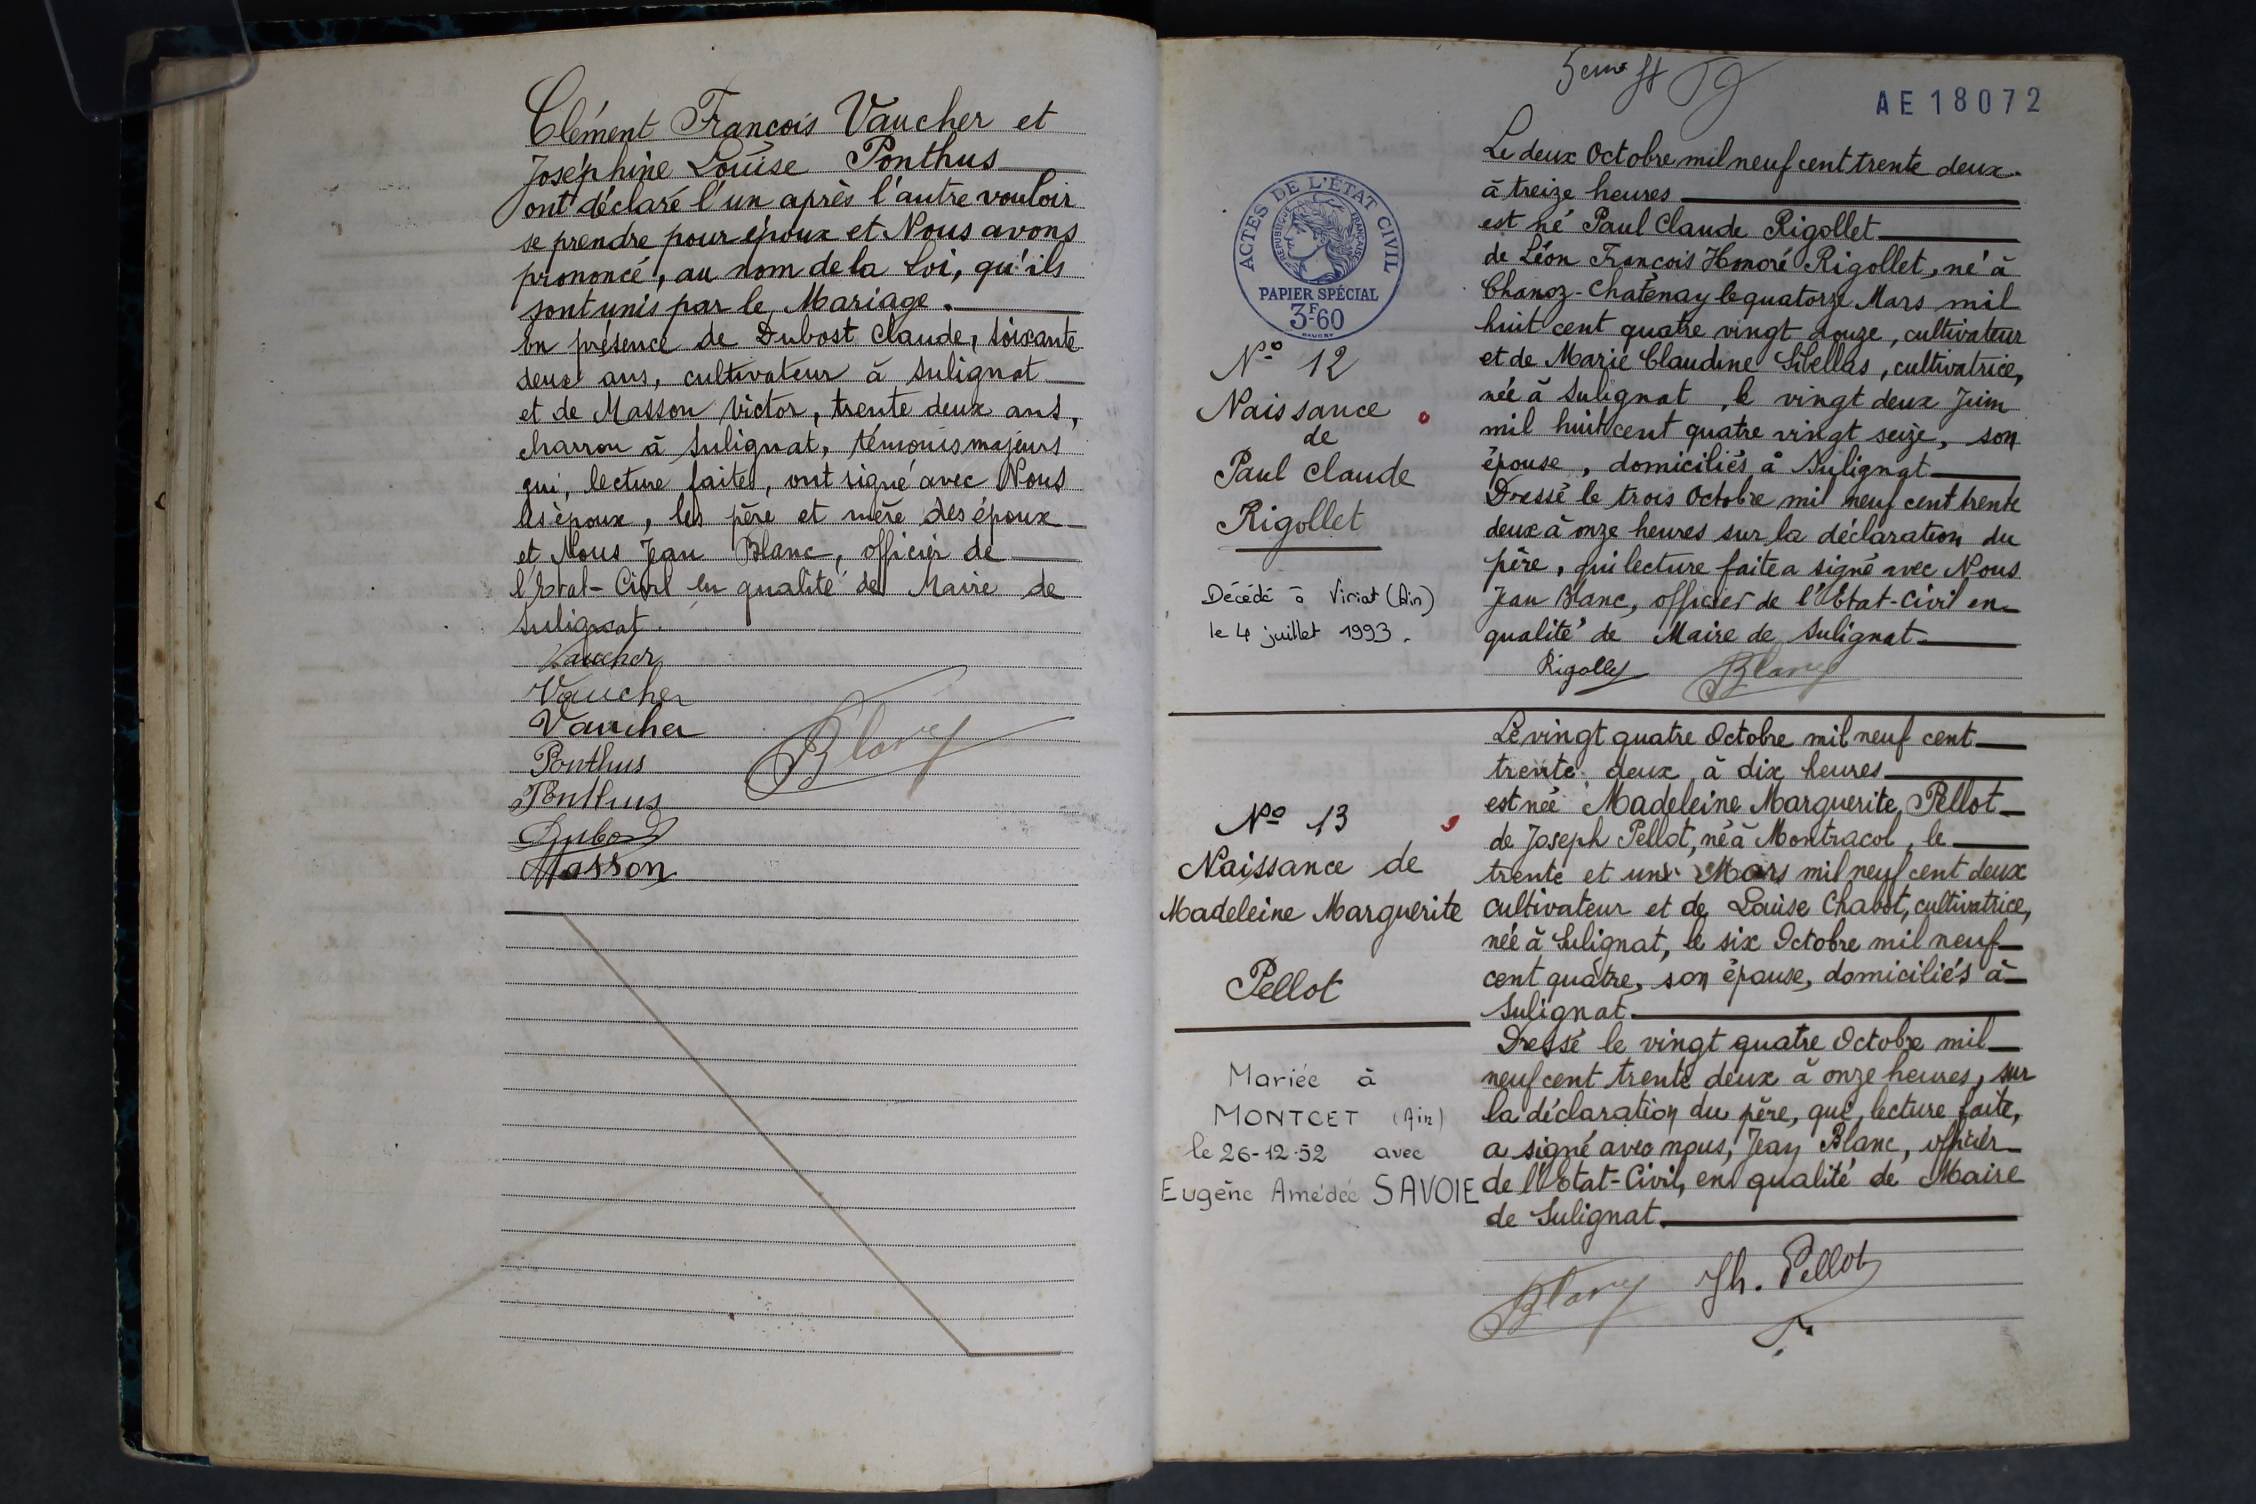 Clément François Vaucher et
Joséphine Louise Ponthus
ont déclaré l'un après l'autre vouloir
se prendre pour époux et Nous avons
prononcé, au nom de la Loi, qu'ils
sont unis par le Mariage.
En présence de Dubost Claude, soixante
deux ans, cultivateur à Sulignat
et de Masson Victor, trente deux ans,
charron à Sulignat, témoins majeurs
qui, lecture faite, ont signé avec Nous
les époux, les père et mère des époux
et Nous Jean Blanc, officier de
l'Etat-Civil en qualité de Maire de
Sulignat.
Vaucher
Vaucher
Vaucher
Ponthus
Blanc
Ponthus
Dubost
Masson
AE 18072
ACTES DE L'ÉTAT CIVIL
RÉPUBLIQUE FRANÇAISE
PAPIER SPÉCIAL
3F-60
No 12
Naissance
de
Paul Claude
Rigollet
Décédé à Viriat (Ain)
le 4 juillet 1993.
Le deux Octobre mil neuf cent trente deux
à treize heures
est né Paul Claude Rigollet
de Léon François Honoré Rigollet, né à
Chanoz-Chatenay le quatorze Mars mil
huit cent quatre vingt douze, cultivateur
et de Marie Claudine Sibellas, cultivatrice,
née à Sulignat, le vingt deux Juin
mil huit cent quatre vingt seize, son
épouse, domiciliés à Sulignat
Dressé le trois Octobre mil neuf cent trente
deux à onze heures sur la déclaration du
père, qui lecture faite a signé avec Nous
Jean Blanc, officier de l'Etat-Civil en
qualité de Maire de Sulignat
Rigollet Blanc
No 13
Naissance de
Madeleine Marguerite
Pellot
Mariée à
MONTCET (Ain)
le 26-12-52 avec
Eugène Amédée SAVOIE
Le vingt quatre Octobre mil neuf cent
trente deux à dix heures
est née Madeleine Marguerite Pellot
de Joseph Pellot, né à Montracol, le
trente et un Mars mil neuf cent deux
cultivateur et de Louise Chabot, cultivatrice,
née à Sulignat, le six Octobre mil neuf
cent quatre, son épouse, domiciliés à
Sulignat.
Dressé le vingt quatre Octobre mil
neuf cent trente deux à onze heures, sur
la déclaration du père, qui, lecture faite,
a signé avec nous, Jean Blanc, officier
de l'Etat-Civil, en qualité de Maire
de Sulignat.
Blanc Jh. Pellot